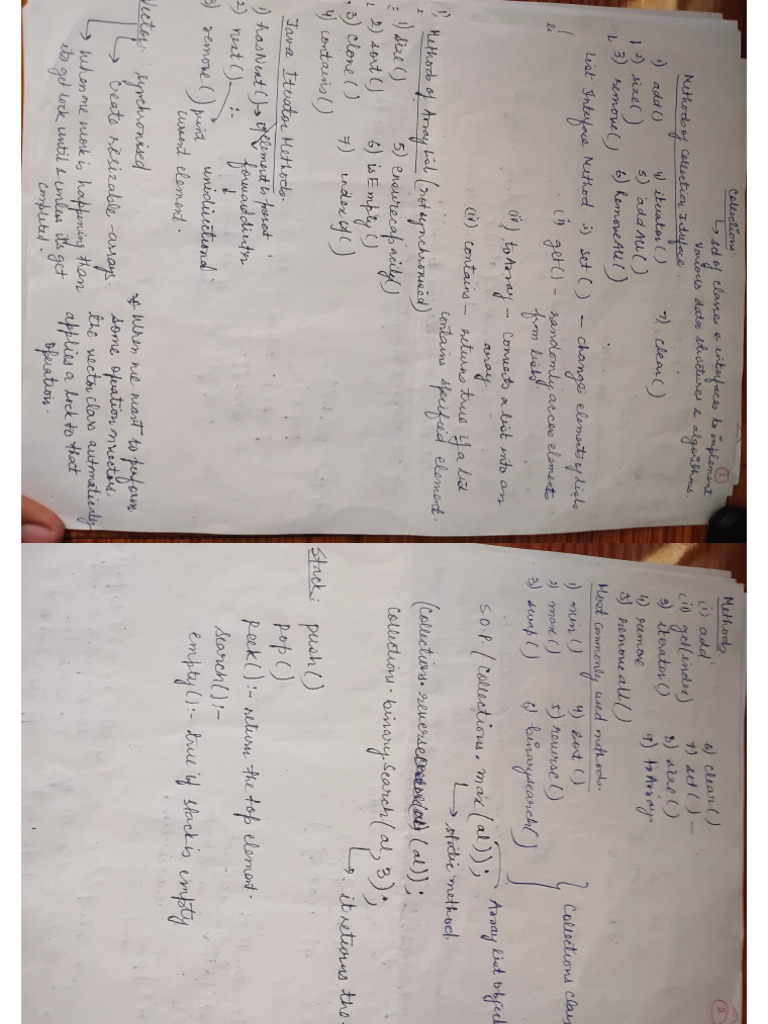 Collections:
↳ set of classes & interfaces to implement
various data structures & algorithms.
Methods of Collection Interface.
1) add() 4) iterator() 7) clear()
2) size() 5) addAll()
3) remove() 6) RemoveAll()
List Interface Method i) set() – change elements of lists
(ii) get() – randomly access elements
from lists.
(iii) toArray – converts a list into an
array.
(iv) contains – returns true if a list
contains specified element.
Methods of Array List (not synchronised)
1) size() 5) ensurecapacity()
2) sort() 6) isEmpty()
3) clone() 7) indexof()
4) contains()
Java Iterator Methods.
1) hasNext() → if element is present
2) next() :- forward direction
3) remove() unidirectional
current element.
Vector: synchronised
↳ Create resizable-arrays.
↳ When one work is happening than
its get lock until & unless its get
completed.
* When we want to perform
some operation on vectors
the vector class automatically
applies a lock to that
operation.
1
Methods
(i) add 6) clear()
(ii) get(index) 7) set() –
3) iterator() 8) size()
4) remove 9) toArray.
5) removeAll()
Most commonly used methods.
1) min() 4) sort()
2) max() 5) reverse()
3) swap() 6) binarysearch()
} Collections class
S.O.P. (Collections.max(al));
↳ static method.
Array list object
(Collection.reverse (al));
Collection.binarySearch(al,3);
↳ it returns the
Stack: push()
pop()
peek():- return the top element.
search():-
empty():- true if stack is empty
2